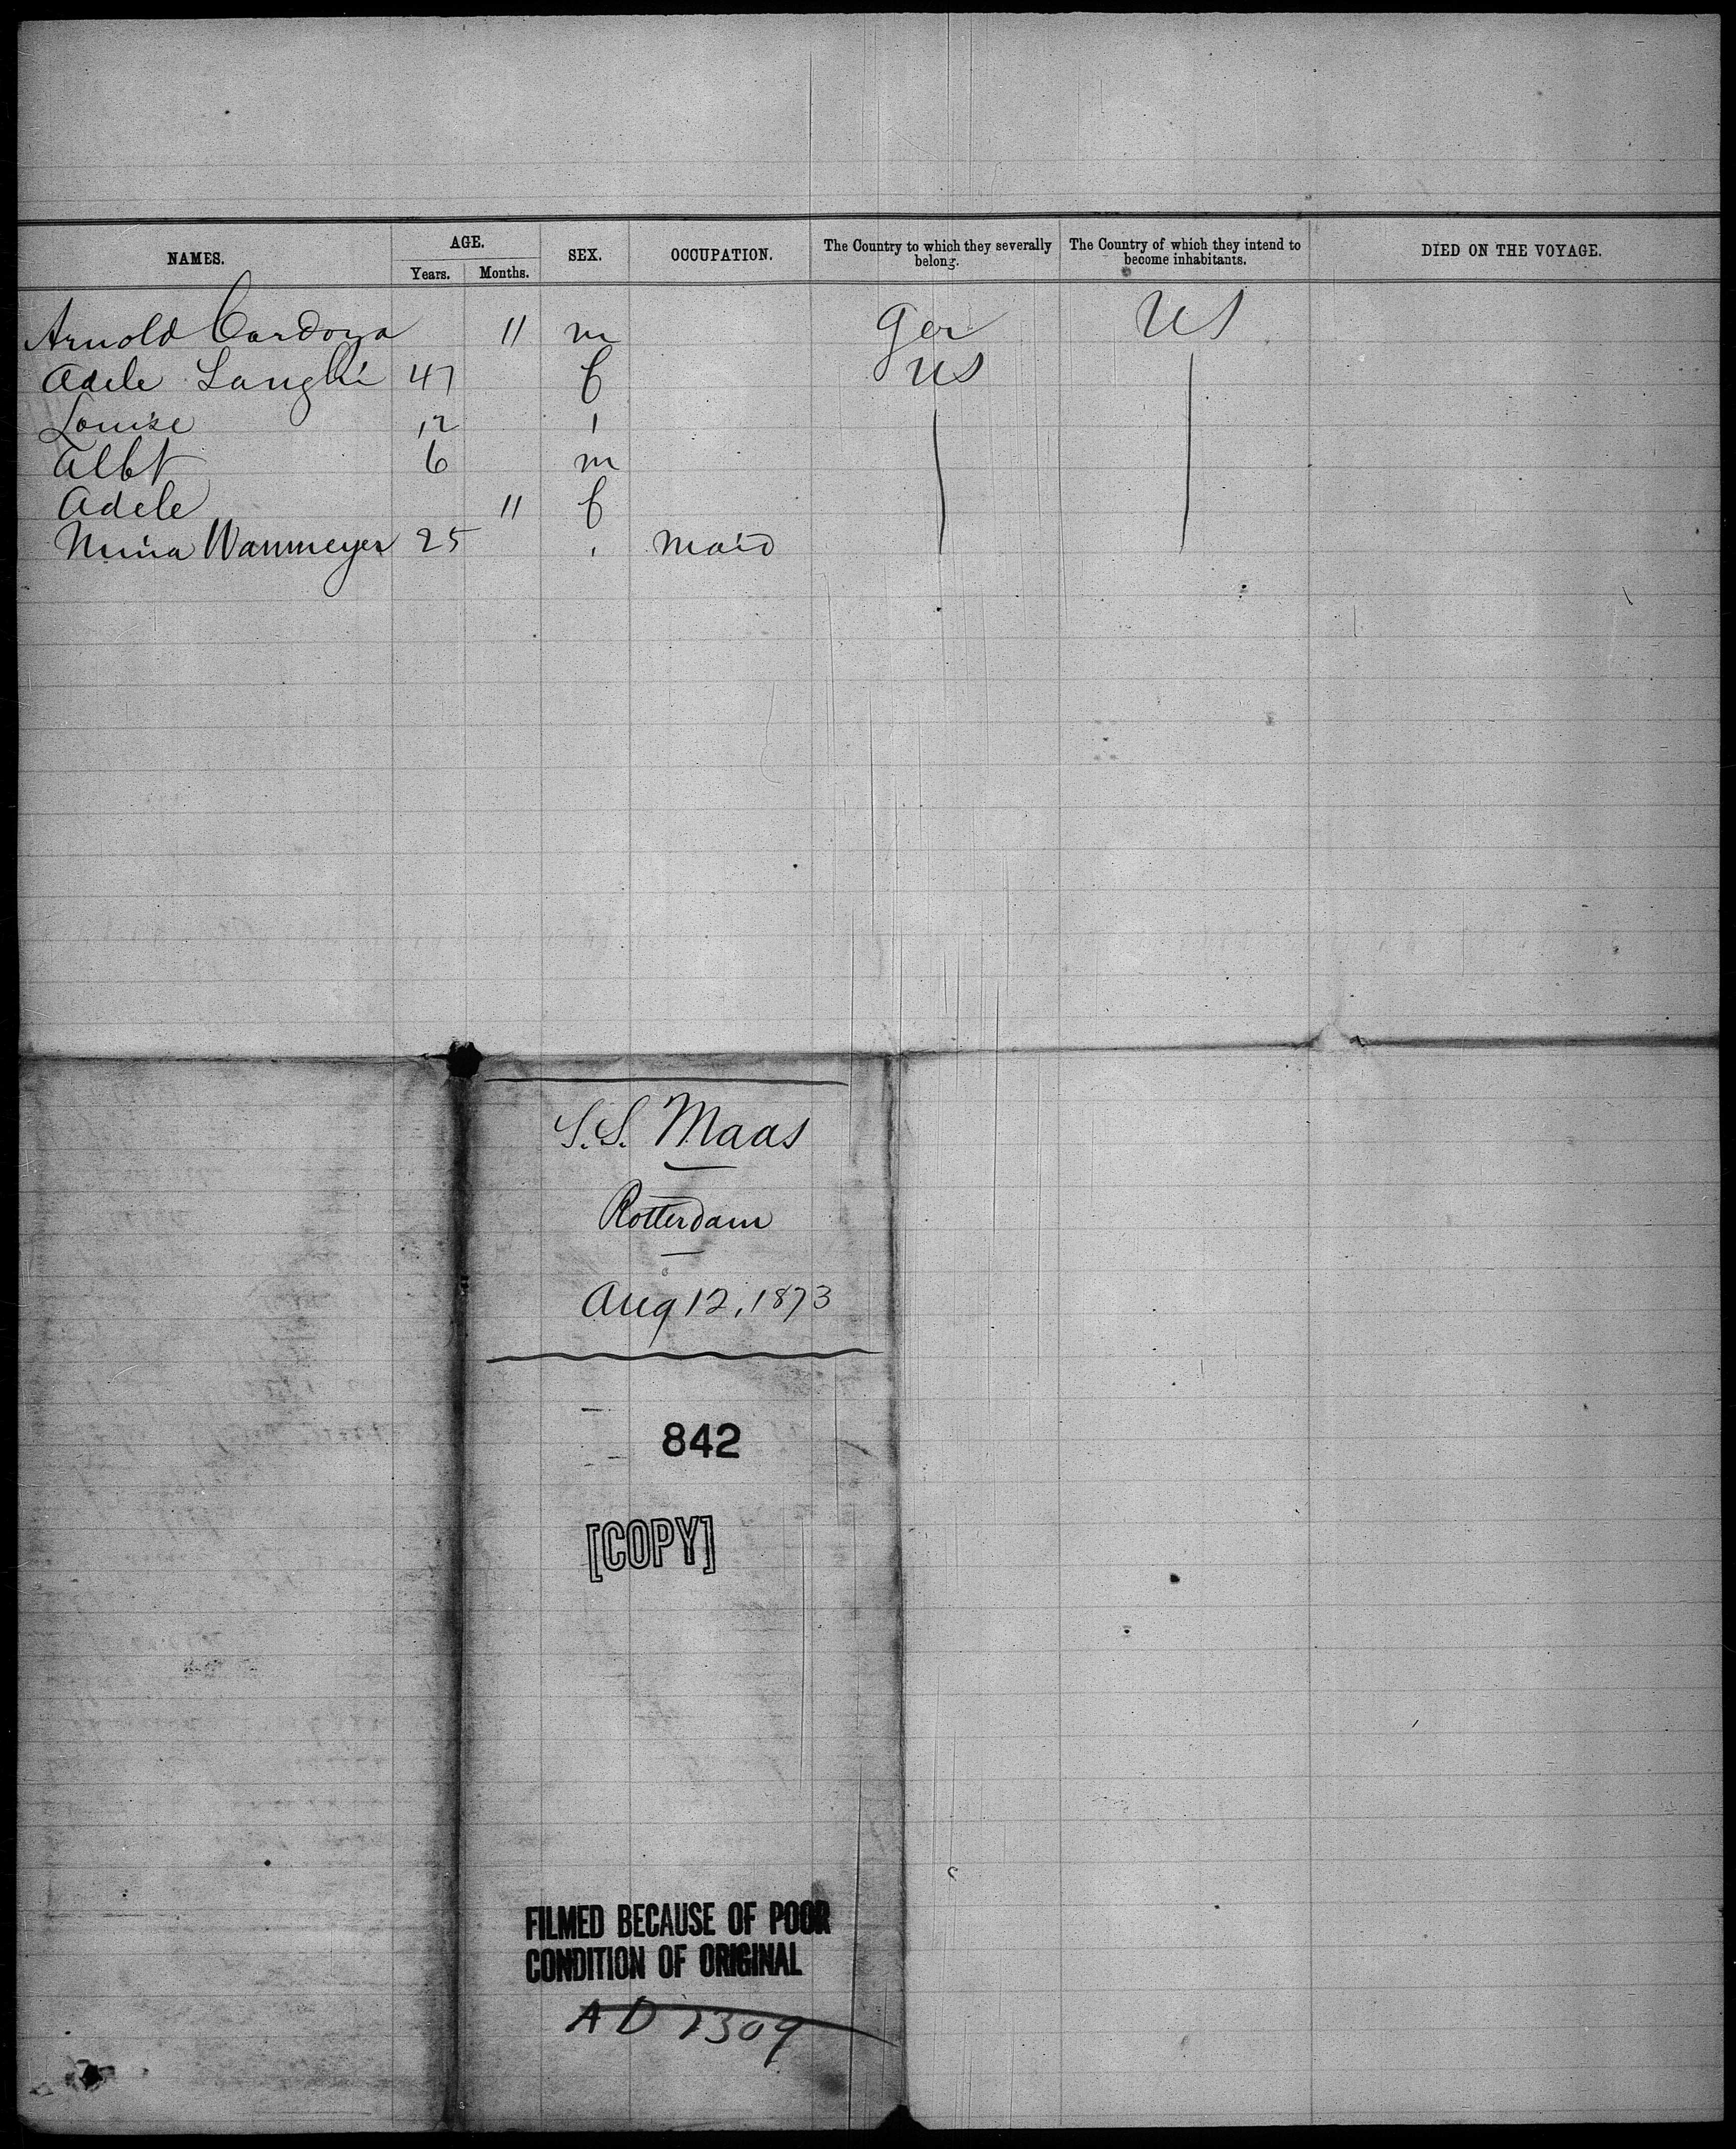 NAMES. AGE. SEX. OCCUPATION. The Country to which they severally belong. The Country of which they intend to become inhabitants. DIED ON THE VOYAGE.
Years. Months.
Arnold Cardoza 11 m Ger US
Adele Langhi 47 f US
Louise 12 "
Albt 6 m
Adele 11 f
Mina Wanmeyer 25 " maid
S.S. Maas
Rotterdam
Aug 12, 1873
842
[COPY]
FILMED BECAUSE OF POOR
CONDITION OF ORIGINAL
AD 2309